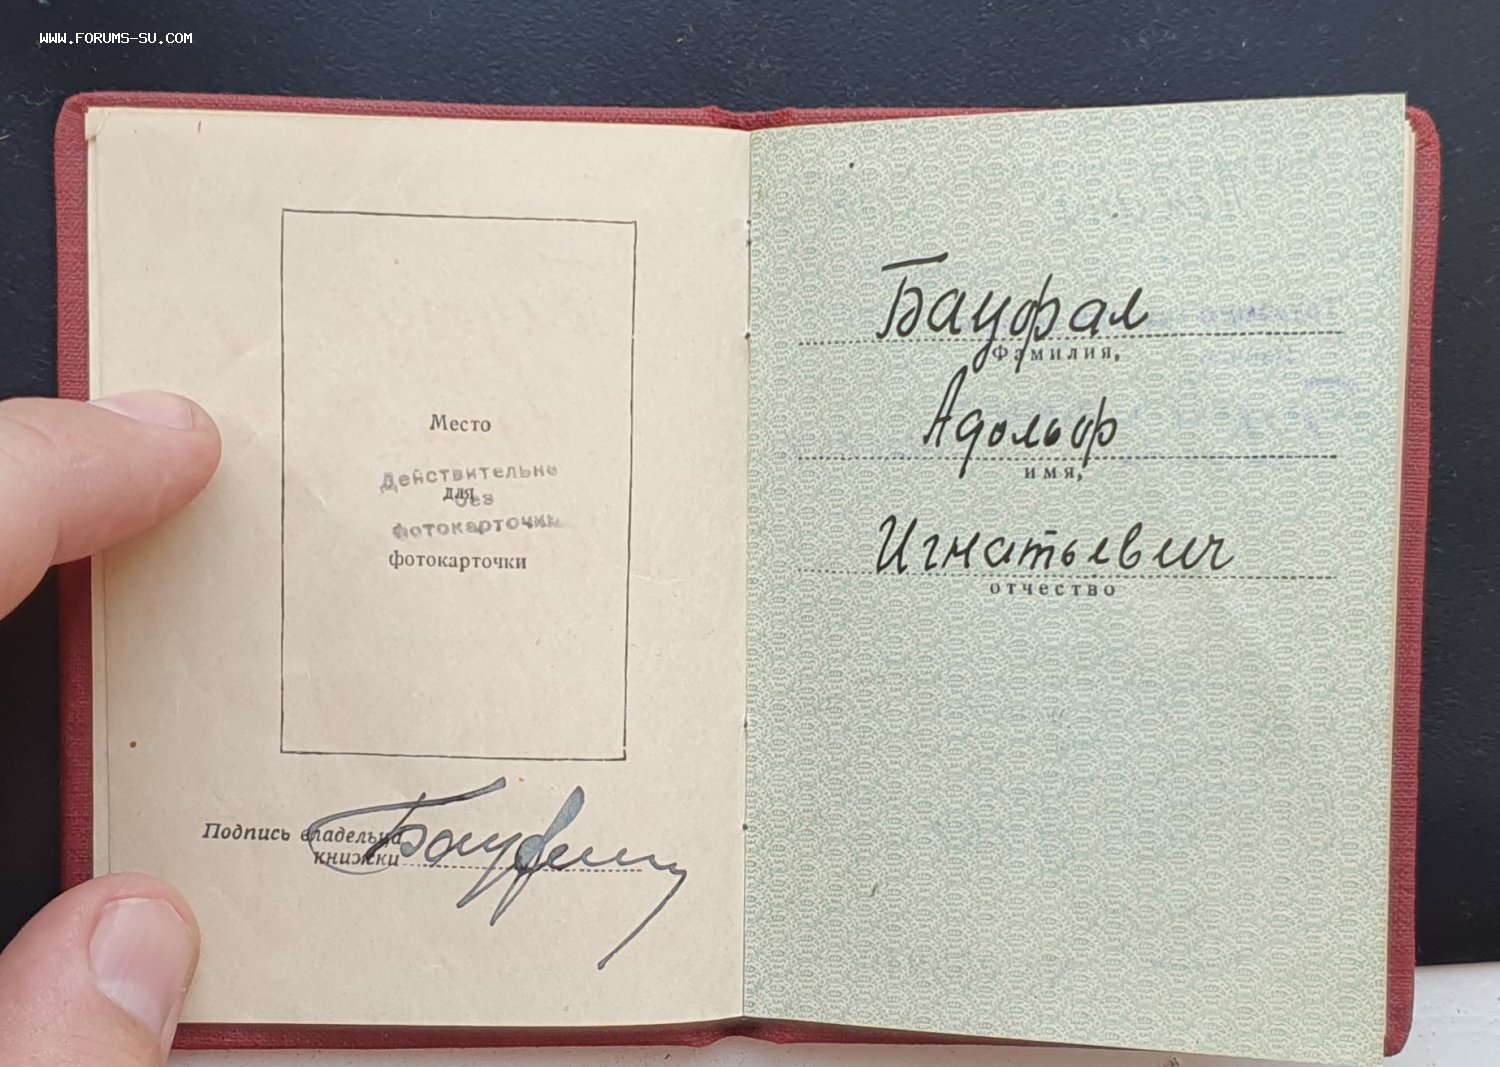 WWW.FORUMS-SU.COM
Место
Действительно
для
без
фотокарточки
фотокарточки
Подпись владельца
книжки
Бауфал
фамилия,
Адольф
имя,
Игнатьевич
отчество